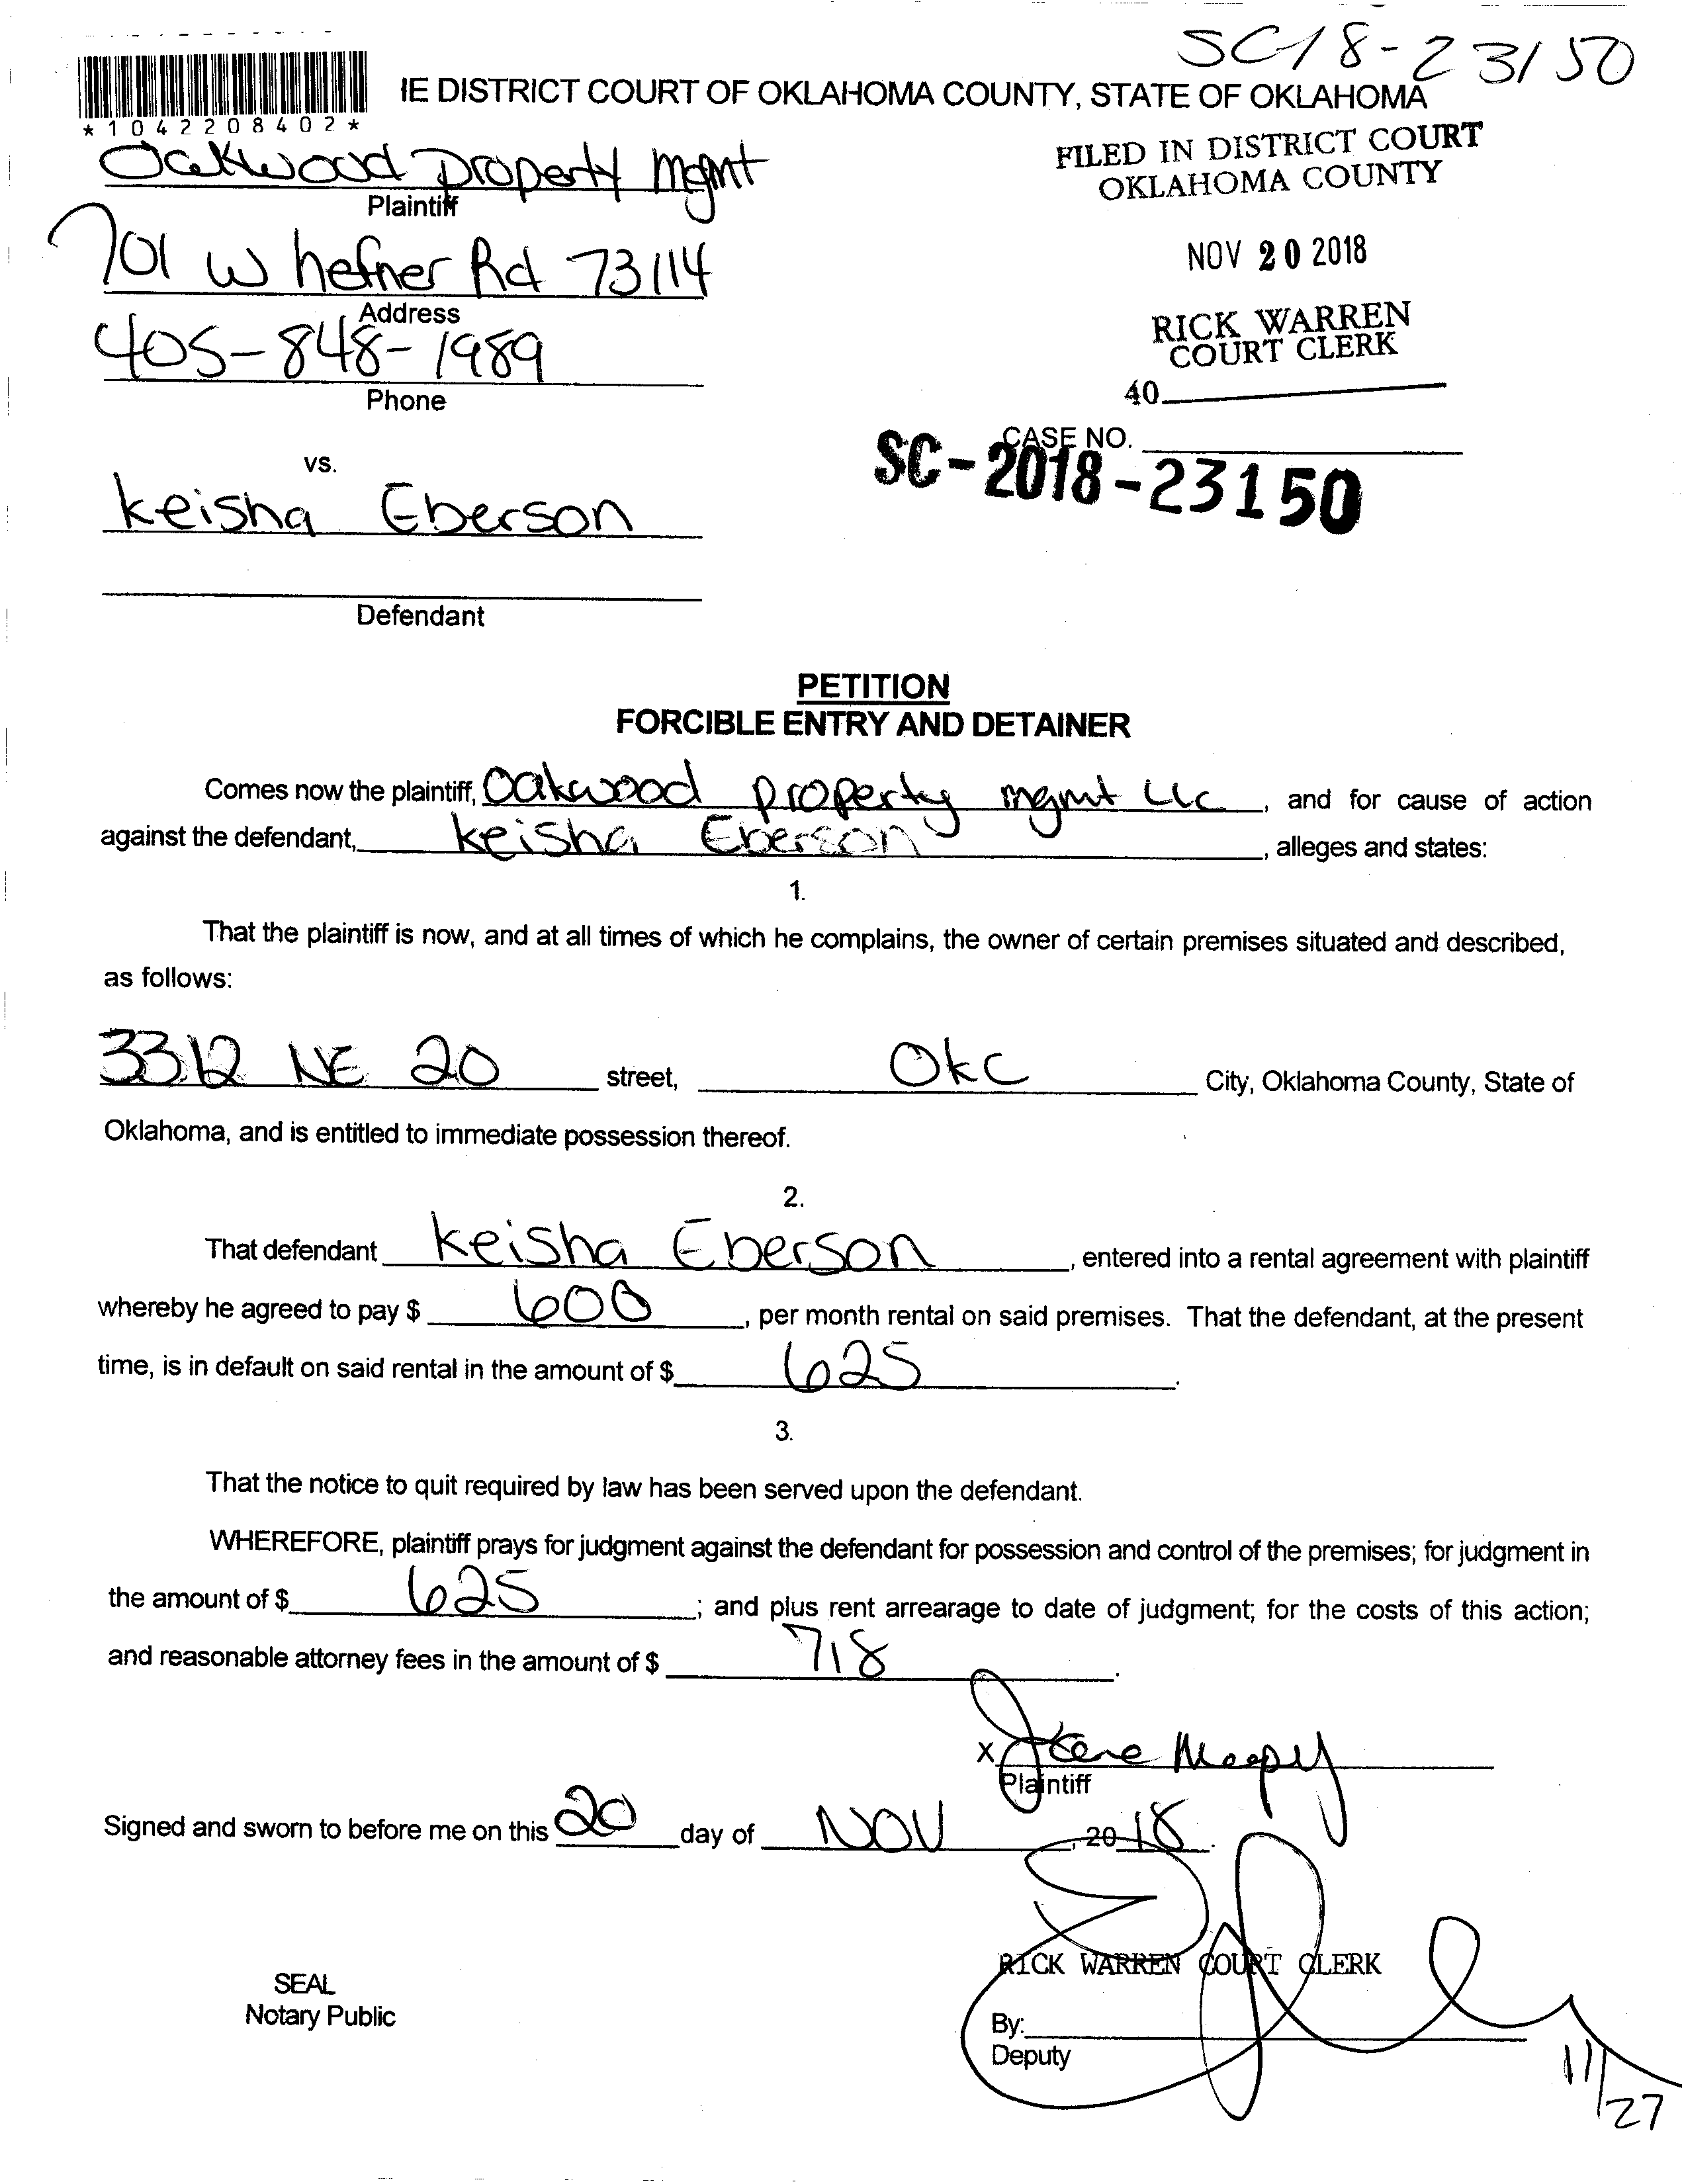 SC18-23150
IE DISTRICT COURT OF OKLAHOMA COUNTY, STATE OF OKLAHOMA
*1042208402*
FILED IN DISTRICT COURT
OKLAHOMA COUNTY
Oakwood property mgmt
Plaintiff
701 W hefner Rd 73114
Address
NOV 20 2018
405-848-1989
Phone
RICK WARREN
COURT CLERK
40
CASE NO.
SC-2018-23150
vs.
keisha Eberson
Defendant
PETITION
FORCIBLE ENTRY AND DETAINER
Comes now the plaintiff, Oakwood property mgmt LLC, and for cause of action
against the defendant, keisha Eberson, alleges and states:
1.
That the plaintiff is now, and at all times of which he complains, the owner of certain premises situated and described,
as follows:
3312 NE 20 street, OKC City, Oklahoma County, State of
Oklahoma, and is entitled to immediate possession thereof.
2.
That defendant keisha Eberson, entered into a rental agreement with plaintiff
whereby he agreed to pay $ 600, per month rental on said premises. That the defendant, at the present
time, is in default on said rental in the amount of $ 625.
3.
That the notice to quit required by law has been served upon the defendant.
WHEREFORE, plaintiff prays for judgment against the defendant for possession and control of the premises; for judgment in
the amount of $ 625; and plus rent arrearage to date of judgment; for the costs of this action;
and reasonable attorney fees in the amount of $ 718.
X
Plaintiff
Signed and sworn to before me on this 20 day of NOV, 2018.
RICK WARREN COURT CLERK
SEAL
Notary Public
By:
Deputy
11/27